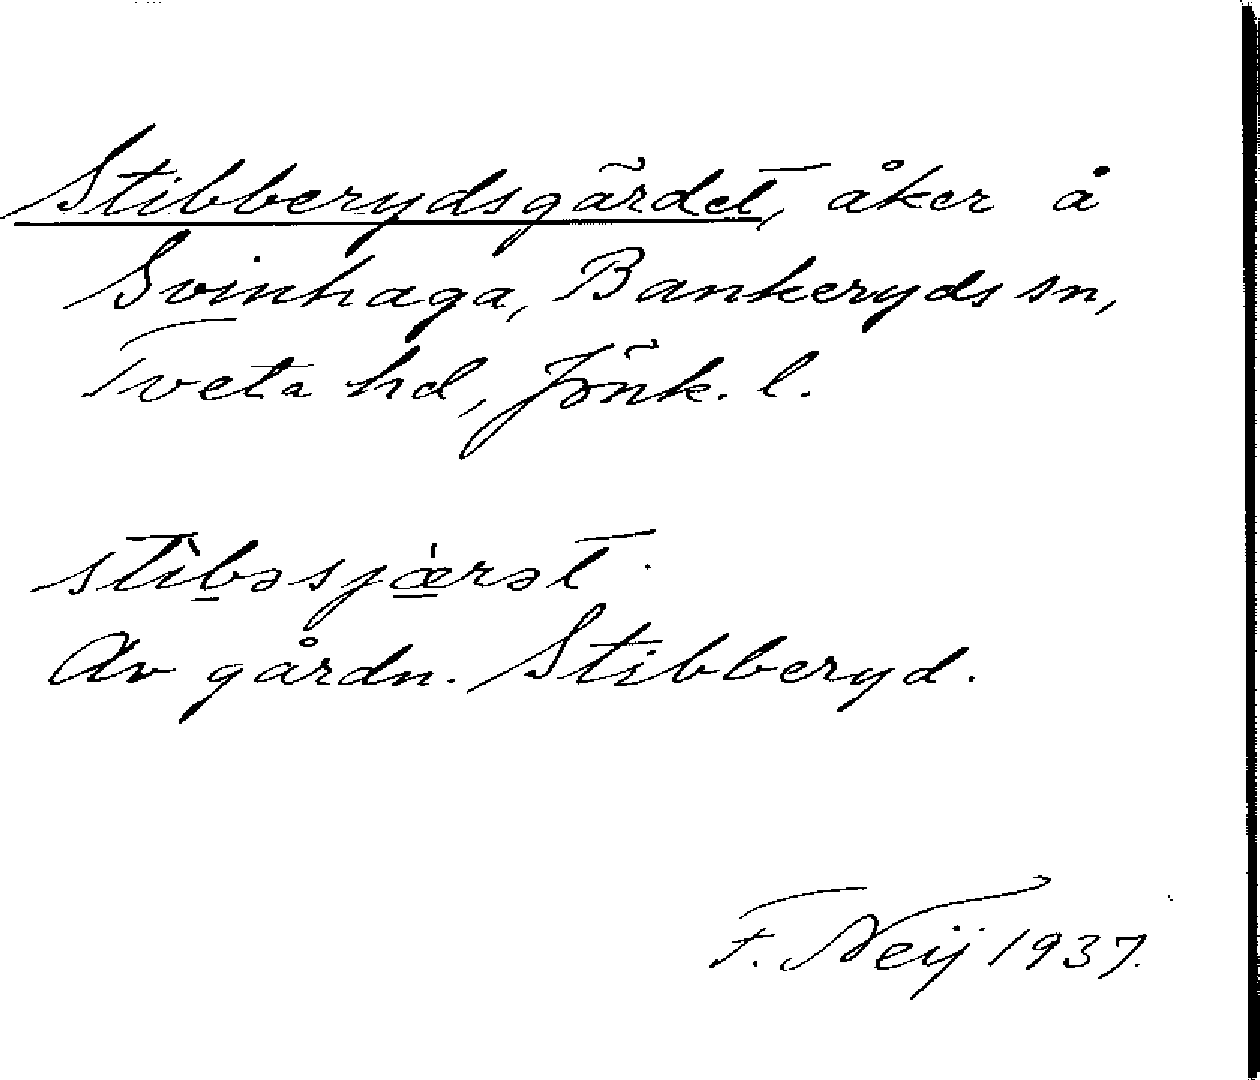 Stibberydsgärdet, åker å
Svinhaga, Bankeryds sn,
Tveta hd, Jönk. l.
stìb̲əsjæ̲̍rət.
Av gårdn. Stibberyd.
F. Neij 1937.